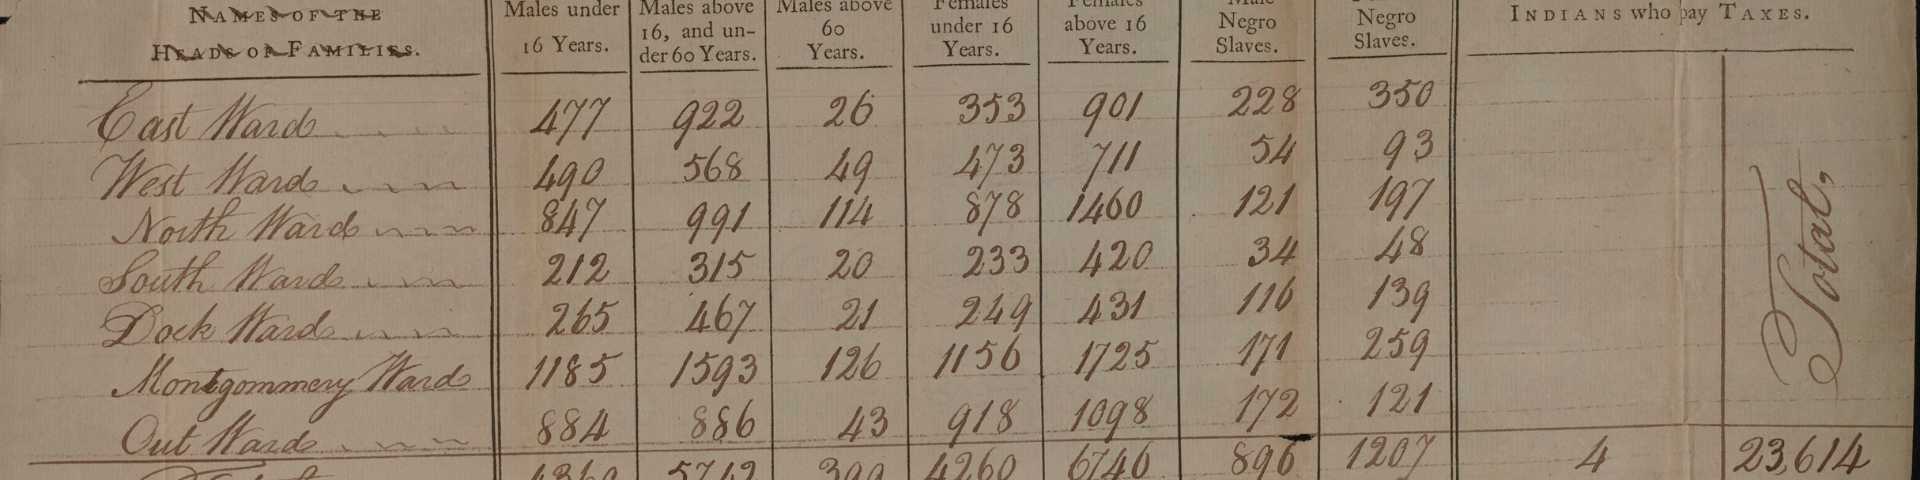 NAMES OF THE HEADS OF FAMILIES. Males under 16 Years. Males above 16, and under 60 Years. Males above 60 Years. Females under 16 Years. Females above 16 Years. Male Negro Slaves. Negro Slaves. INDIANS who pay TAXES.
East Ward 477 922 26 353 901 228 350
West Ward 490 568 49 473 711 54 93
North Ward 847 991 114 878 1460 121 197
South Ward 212 315 20 233 420 34 48
Dock Ward 265 467 21 249 431 116 139
Montgommery Ward 1185 1593 126 1156 1725 171 259
Out Ward 884 886 43 918 1098 172 121
Total,
4360 5742 399 4260 6746 896 1207 4 23,614